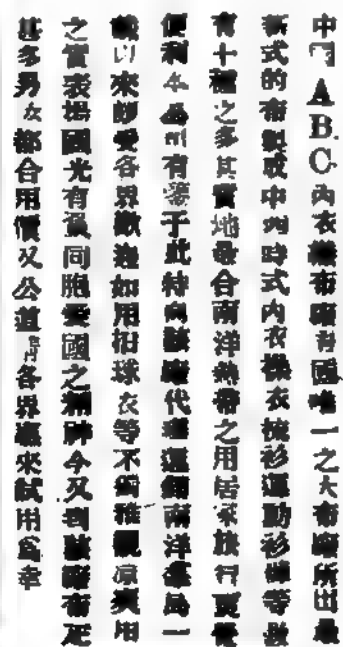 中國A.B.C.內衣織布廠吾國唯一之大布廠所出最
新式的布製成中西時式內衣襯衣梳衫運動衫褲等數
有十種之多其質地最合南洋熱帶之用居家旅行更覺
便利本 有鑒于此特向該廠代理運銷南洋羣島一
以來 各界歡迎如用扣球衣等不獨雅觀涼爽用
之實表 國光有我同胞愛國之精神今又到該廠布疋
甚多男女都合用價又公道 各界惠來試用為幸